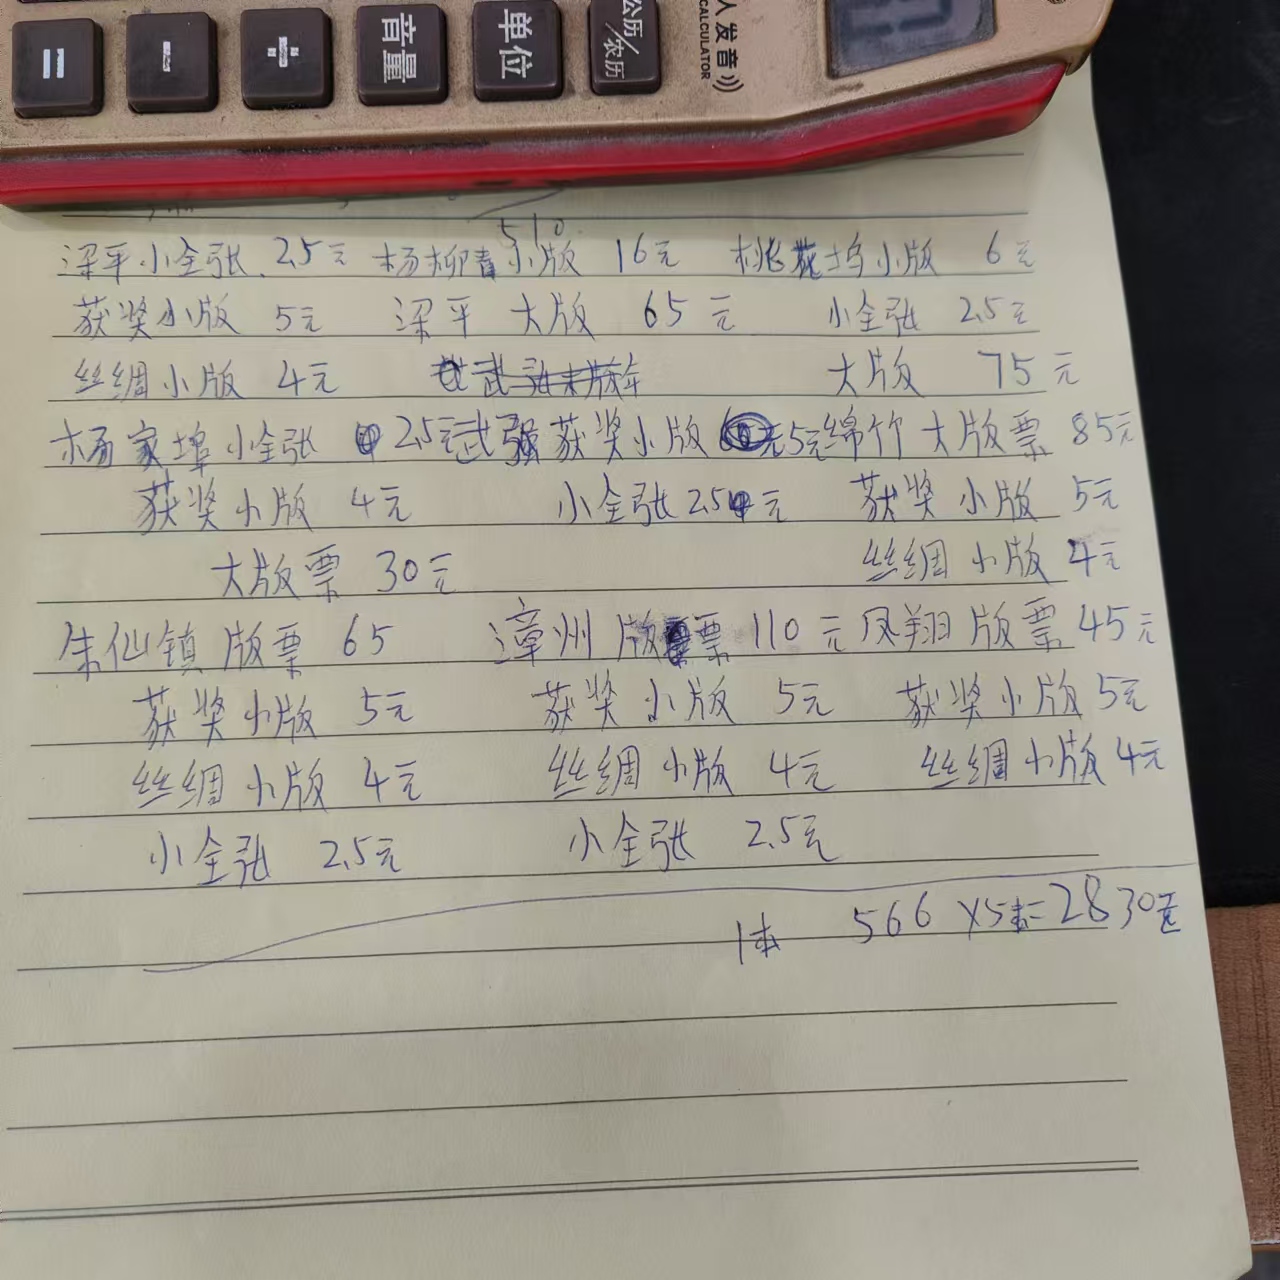 = - + 音量 单位 公历/农历 人发音 CALCULATOR
510
梁平小全张 2.5元 杨柳青小版 16元 桃花坞小版 6元
获奖小版 5元 梁平 大版 65元 小全张 2.5元
丝绸小版 4元 大版 75元
杨家埠小全张 2.5元 武强获奖小版 5元 绵竹大版票 85元
获奖小版 4元 小全张 2.5元 获奖小版 5元
大版票 30元 丝绸小版 4元
朱仙镇版票 65 漳州版票 110元 凤翔版票 45元
获奖小版 5元 获奖小版 5元 获奖小版 5元
丝绸小版 4元 丝绸小版 4元 丝绸小版 4元
小全张 2.5元 小全张 2.5元
1本 566 x5本=2830元